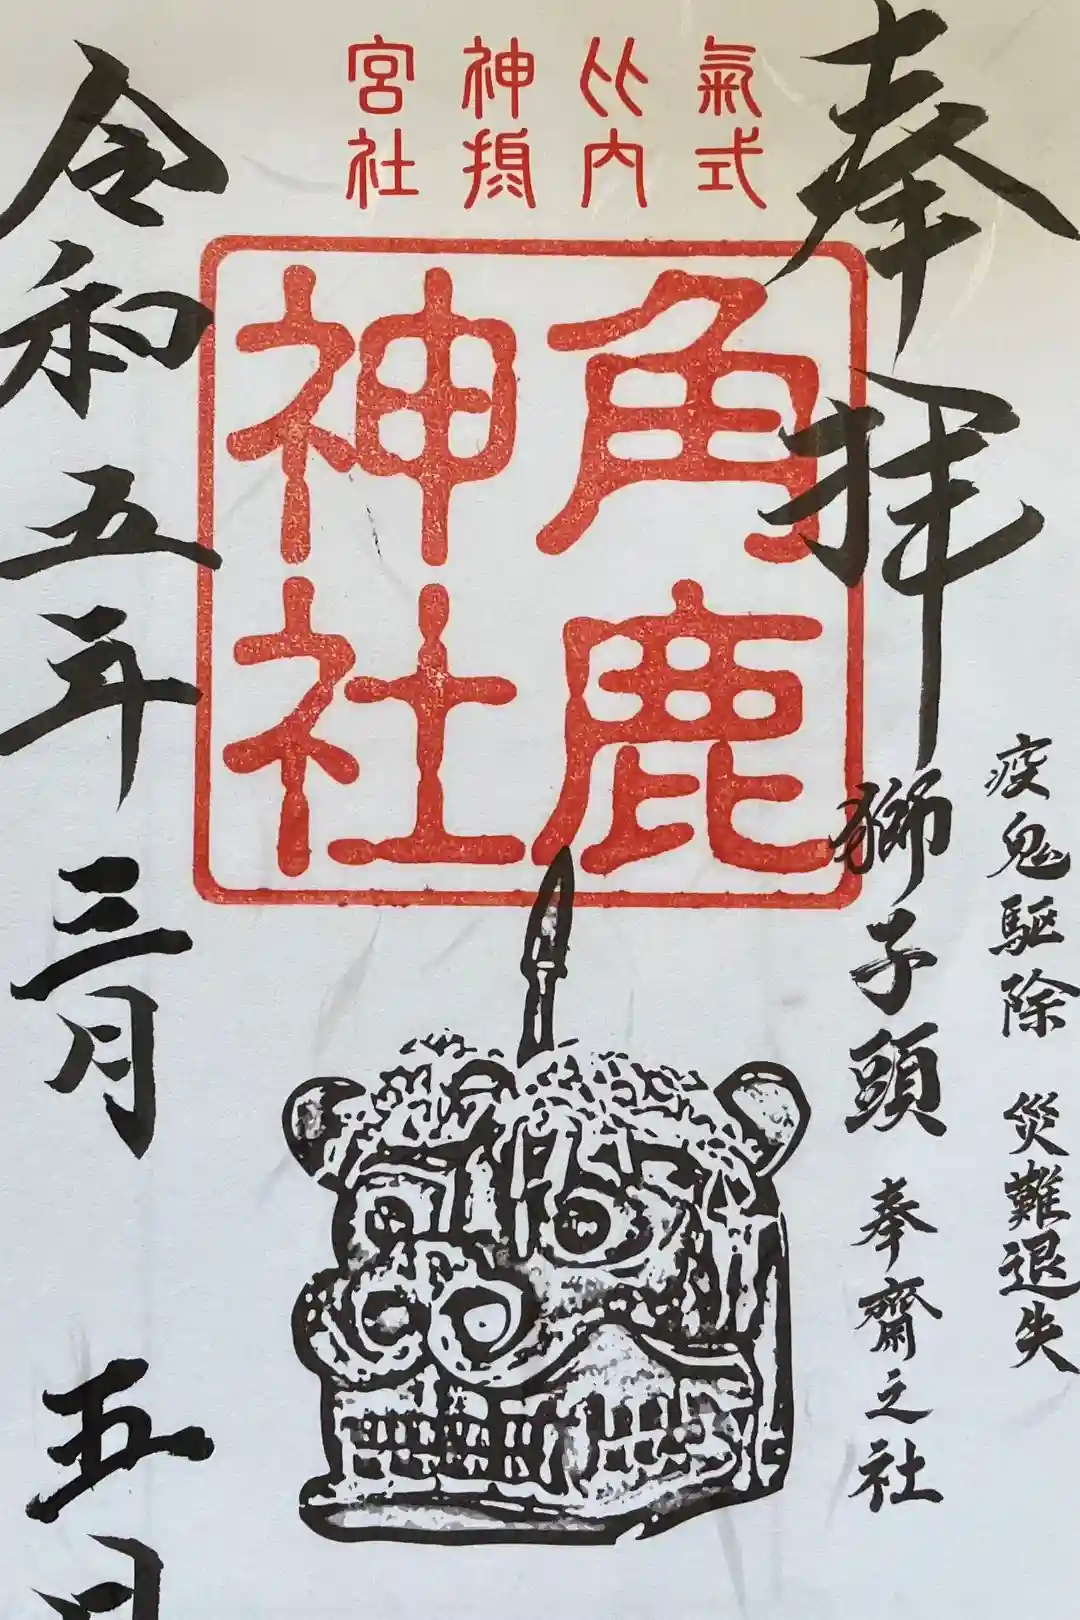 奉拝
疫鬼駆除 災難退失
獅子頭 奉齋之社
氣比神宮
式内摂社
角鹿
神社
令和五年三月五日